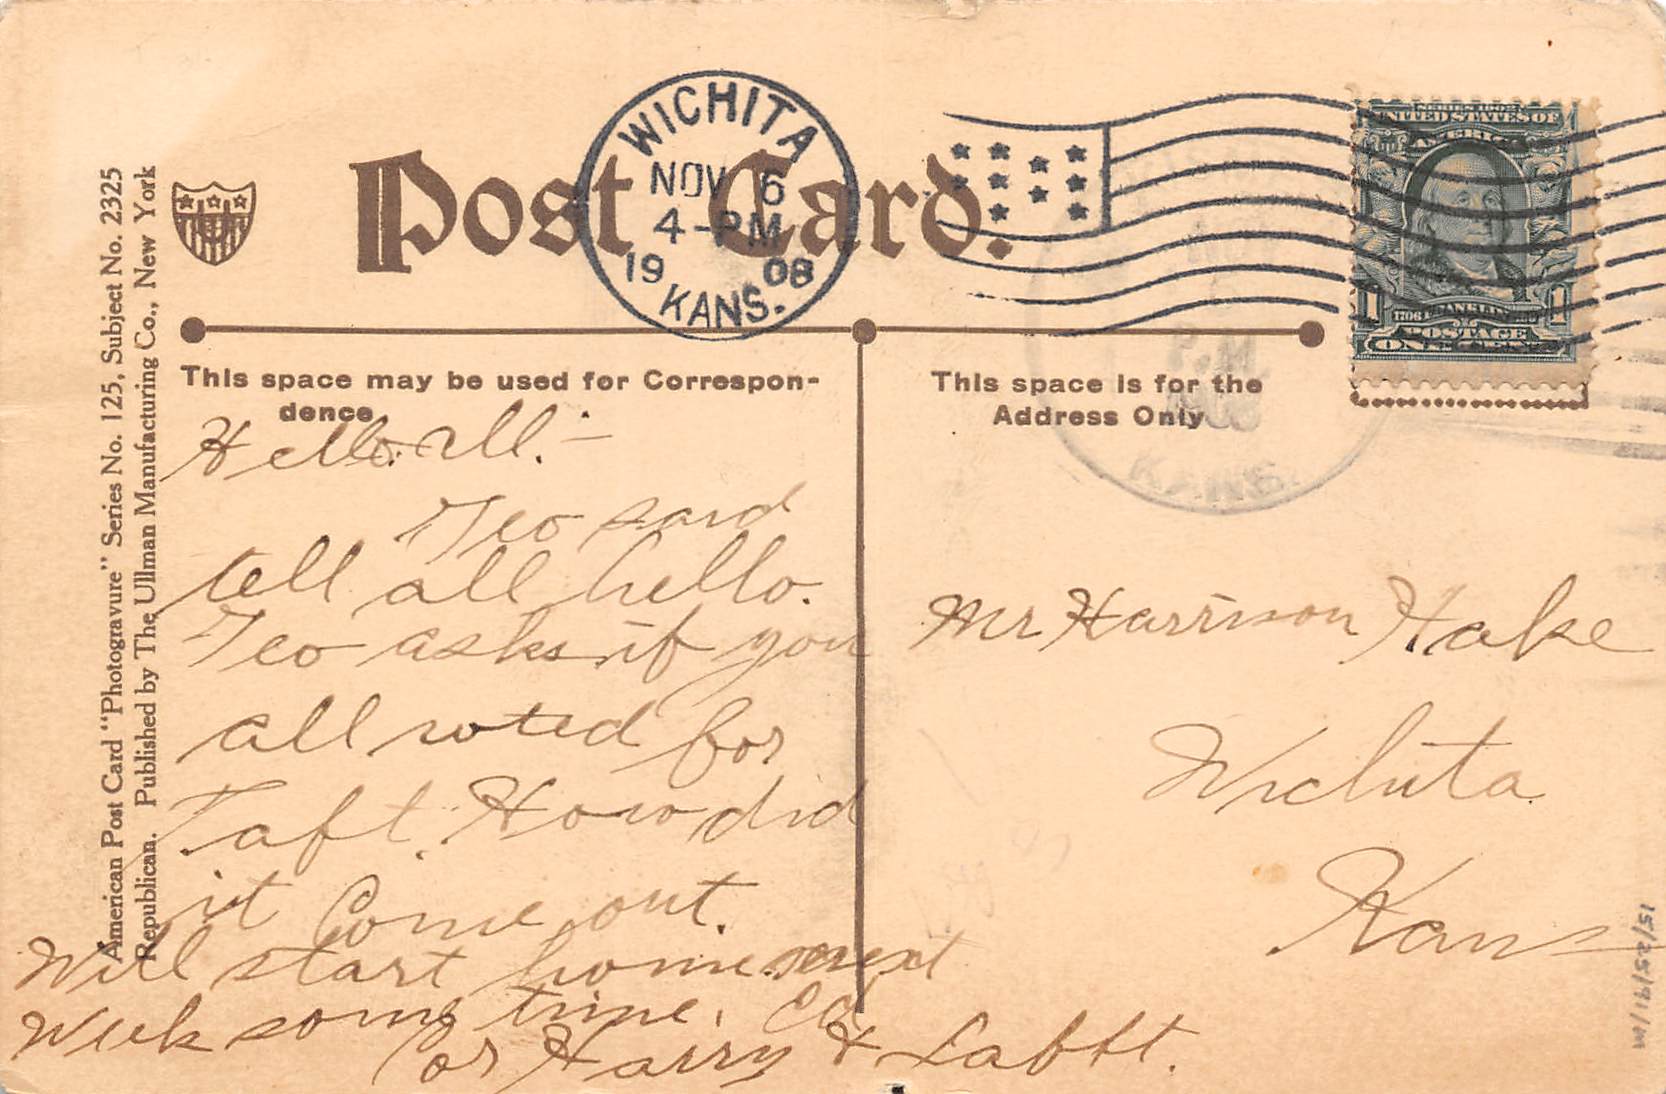 American Post Card "Photogravure" Series No. 125, Subject No. 2325
Republican. Published by The Ullman Manufacturing Co., New York
Post Card.
WICHITA
NOV 6
4-PM
19 08
KANS.
SERIES 1902
UNITED STATES OF
AMERICA
1 1706 FRANKLIN 1
POSTAGE
ONE CENT
P.M.
KANS.
This space may be used for Correspon-
dence
This space is for the
Address Only
Hello all. —
Geo said
tell all hello.
Geo asks if you
all voted for
Taft. How did
it Come out.
Will start home next
Week some time. Ed
or Harry &
Mr Harrison Hake
Wichita
Kans